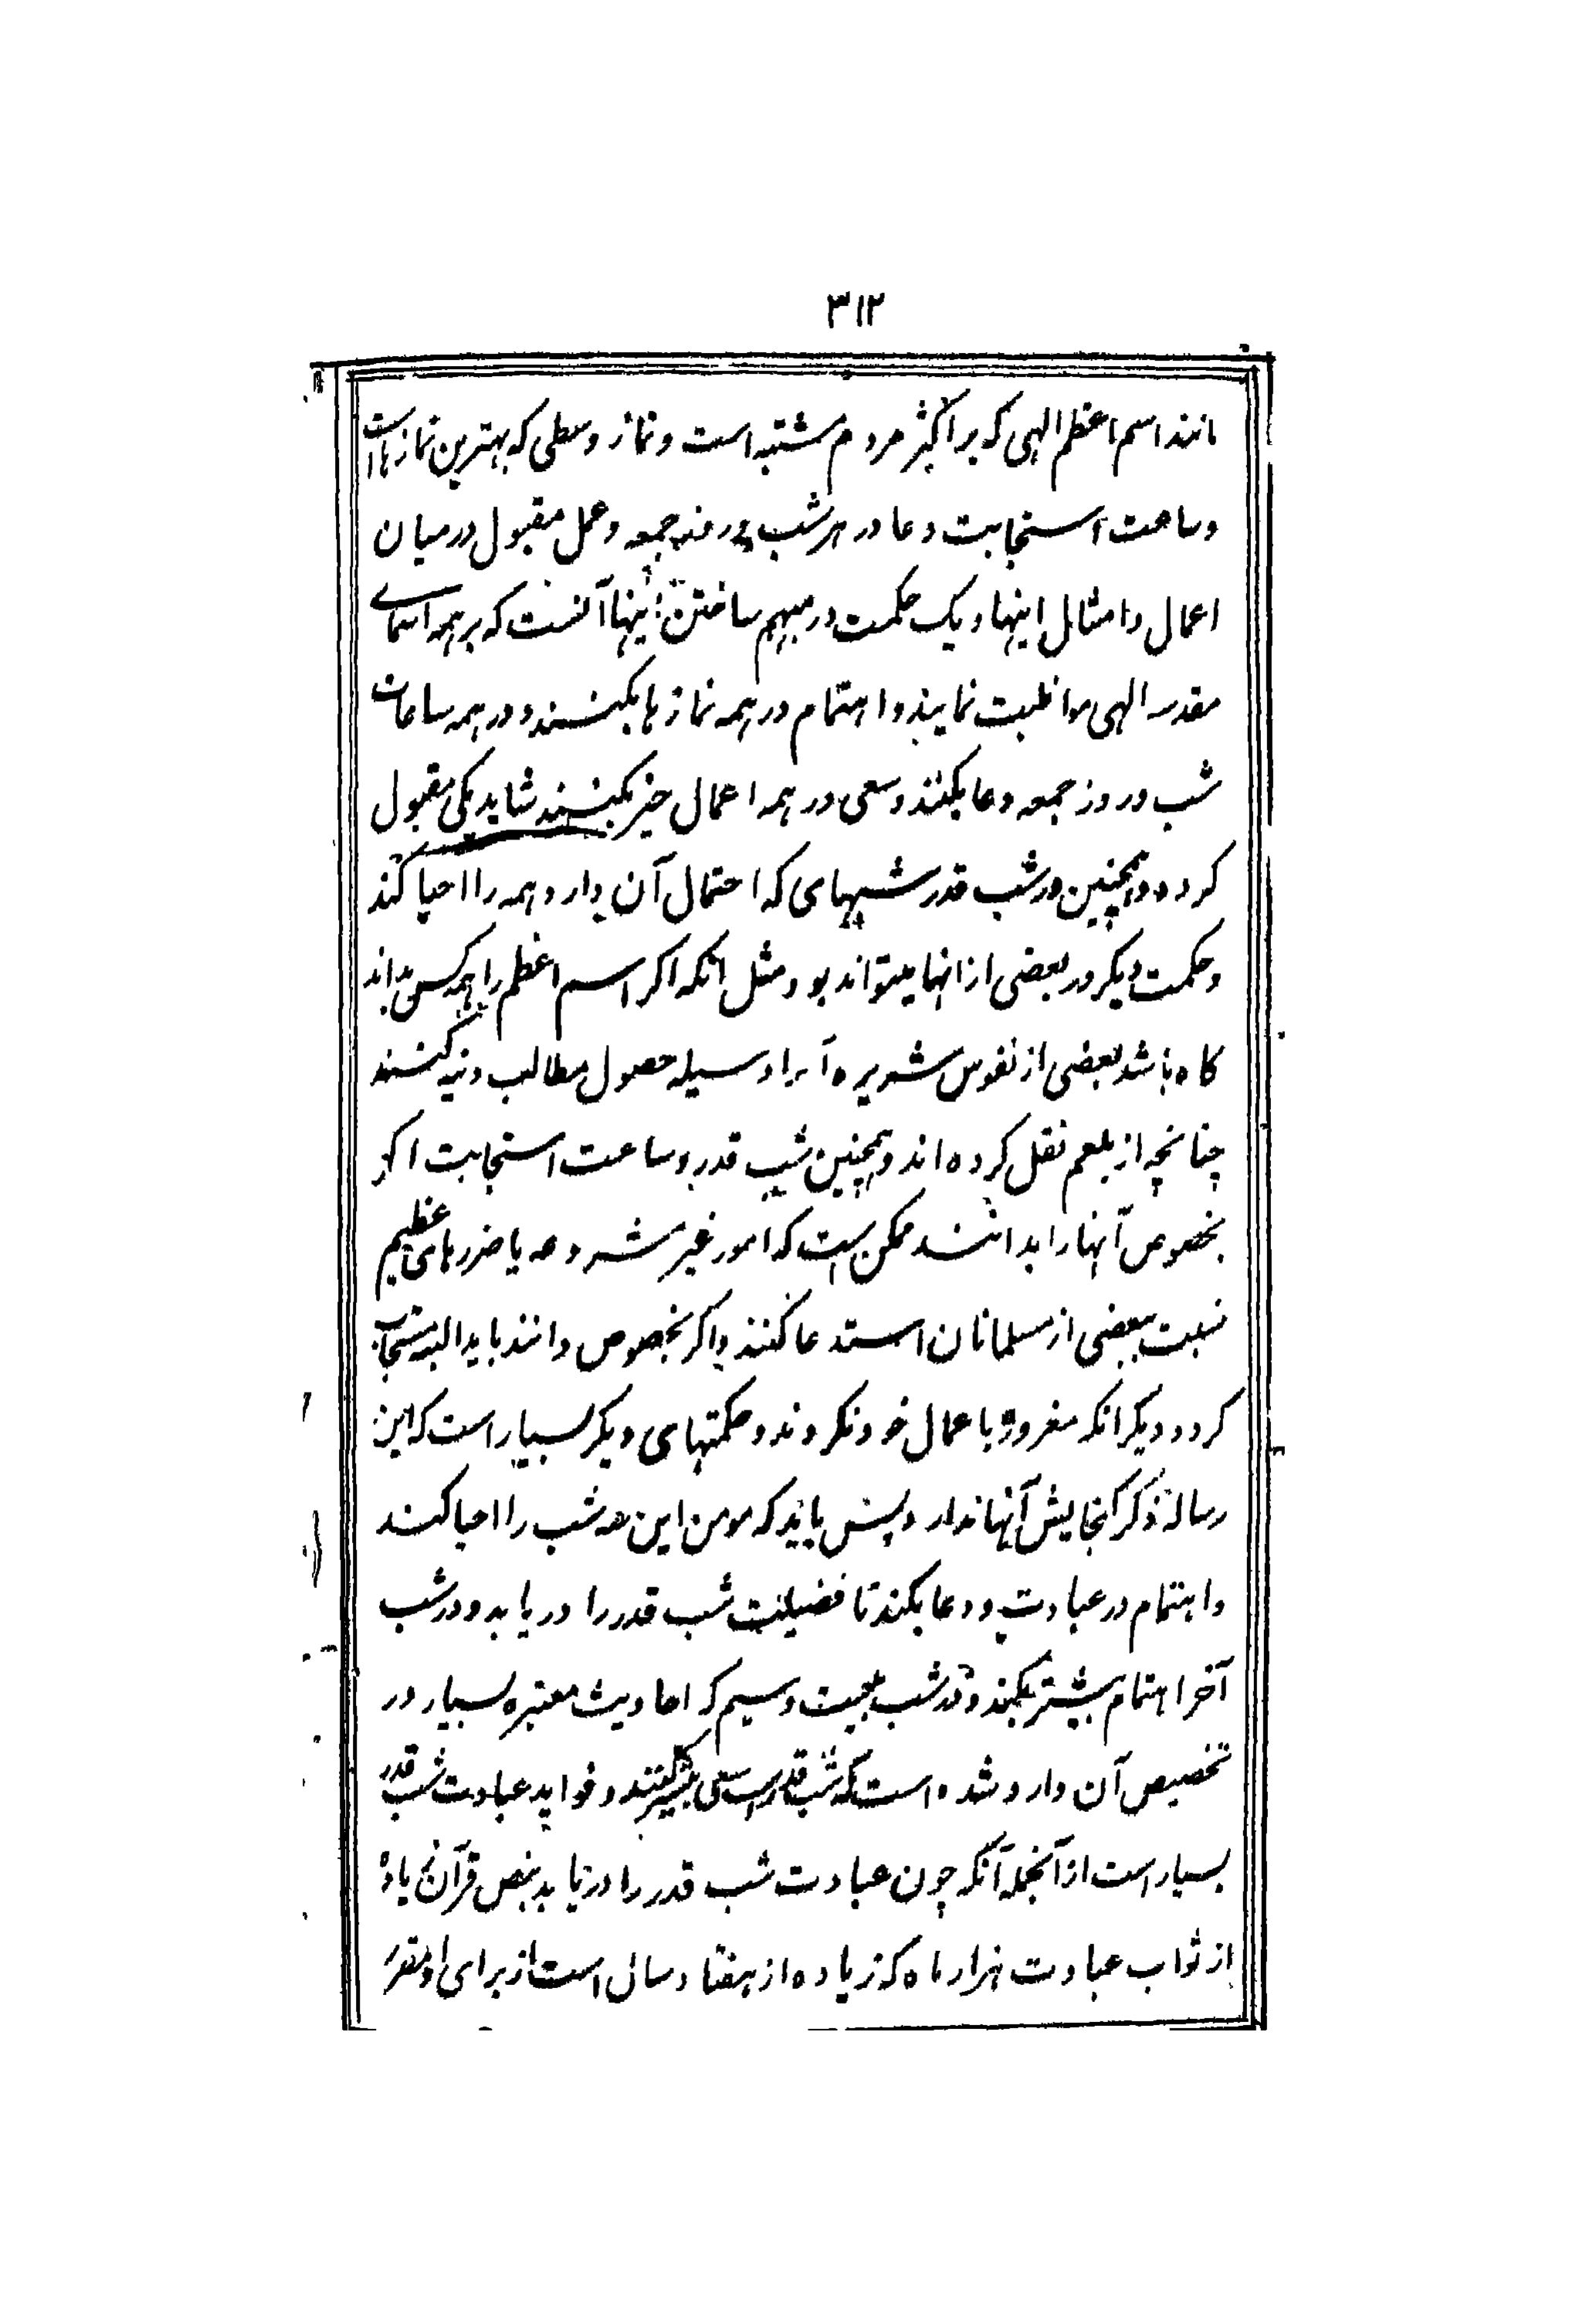 ۳۱۲
مانند اسم اعظم الهی که بر اکثر مردم مشتبه است و نماز وسطی که بهترین نمازها است
و ساعت استجابت دعا در هر شب و روز جمعه و عمل مقبول در میان
اعمال و امثال اینها و یک حکمت در مبهم ساختن اینها آنست که بر همه اسمای
مقدسه الهی مواظبت نمایند و اهتمام در همه نمازها بکنند و در همه ساعات
شب و روز جمعه دعا بکنند و سعی در همه اعمال خیر بکنند شاید یکی مقبول
کردد و همچنین در شب قدر شبهای که احتمال آن دارد همه را احیا کند
و حکمت دیکر در بعضی از انها میتواند بود مثل انکه اکر اسم اعظم را همه کس بداند
کاه باشد بعضی از نفوس شریره آنرا وسیله حصول مطالب دنیه کنند
چنانچه از بلعم نقل کرده اند و همچنین شب قدر و ساعت استجابت اکر
بخصوص آنها را بدانند ممکن است که امور غیر مشروعه یا ضررهای عظیم
نسبت ببعضی از مسلمانان استدعا کنند و اکر بخصوص دانند باید البته مستجاب
کردد و دیکر انکه مغرور باعمال خود نکردند و حکمتهای دیکر بسیار است که این
رساله ذکر کنجایش آنها ندارد پس باید که مومن این سه شب را احیا کند
و اهتمام در عبادت و دعا بکند تا فضیلت شب قدر را دریابد و در شب
آخر اهتمام بیشتر بکند و در شب بیست و سیم که احادیث معتبره بسیار در
تخصیص آن وارد شده است که شب قدر است سعی بیشتر کنند و فواید عبادت شب قدر
بسیار است از آنجمله آنکه چون عبادت شب قدر را دریابد بنص قرآن زیاده
از ثواب عبادت هزار ماه که زیاده از هفتاد سال است از برای او مقرر